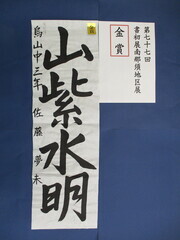 第七十七回
書初展南那須地区展
金賞
山紫水明
烏山中三年 佐藤夢未